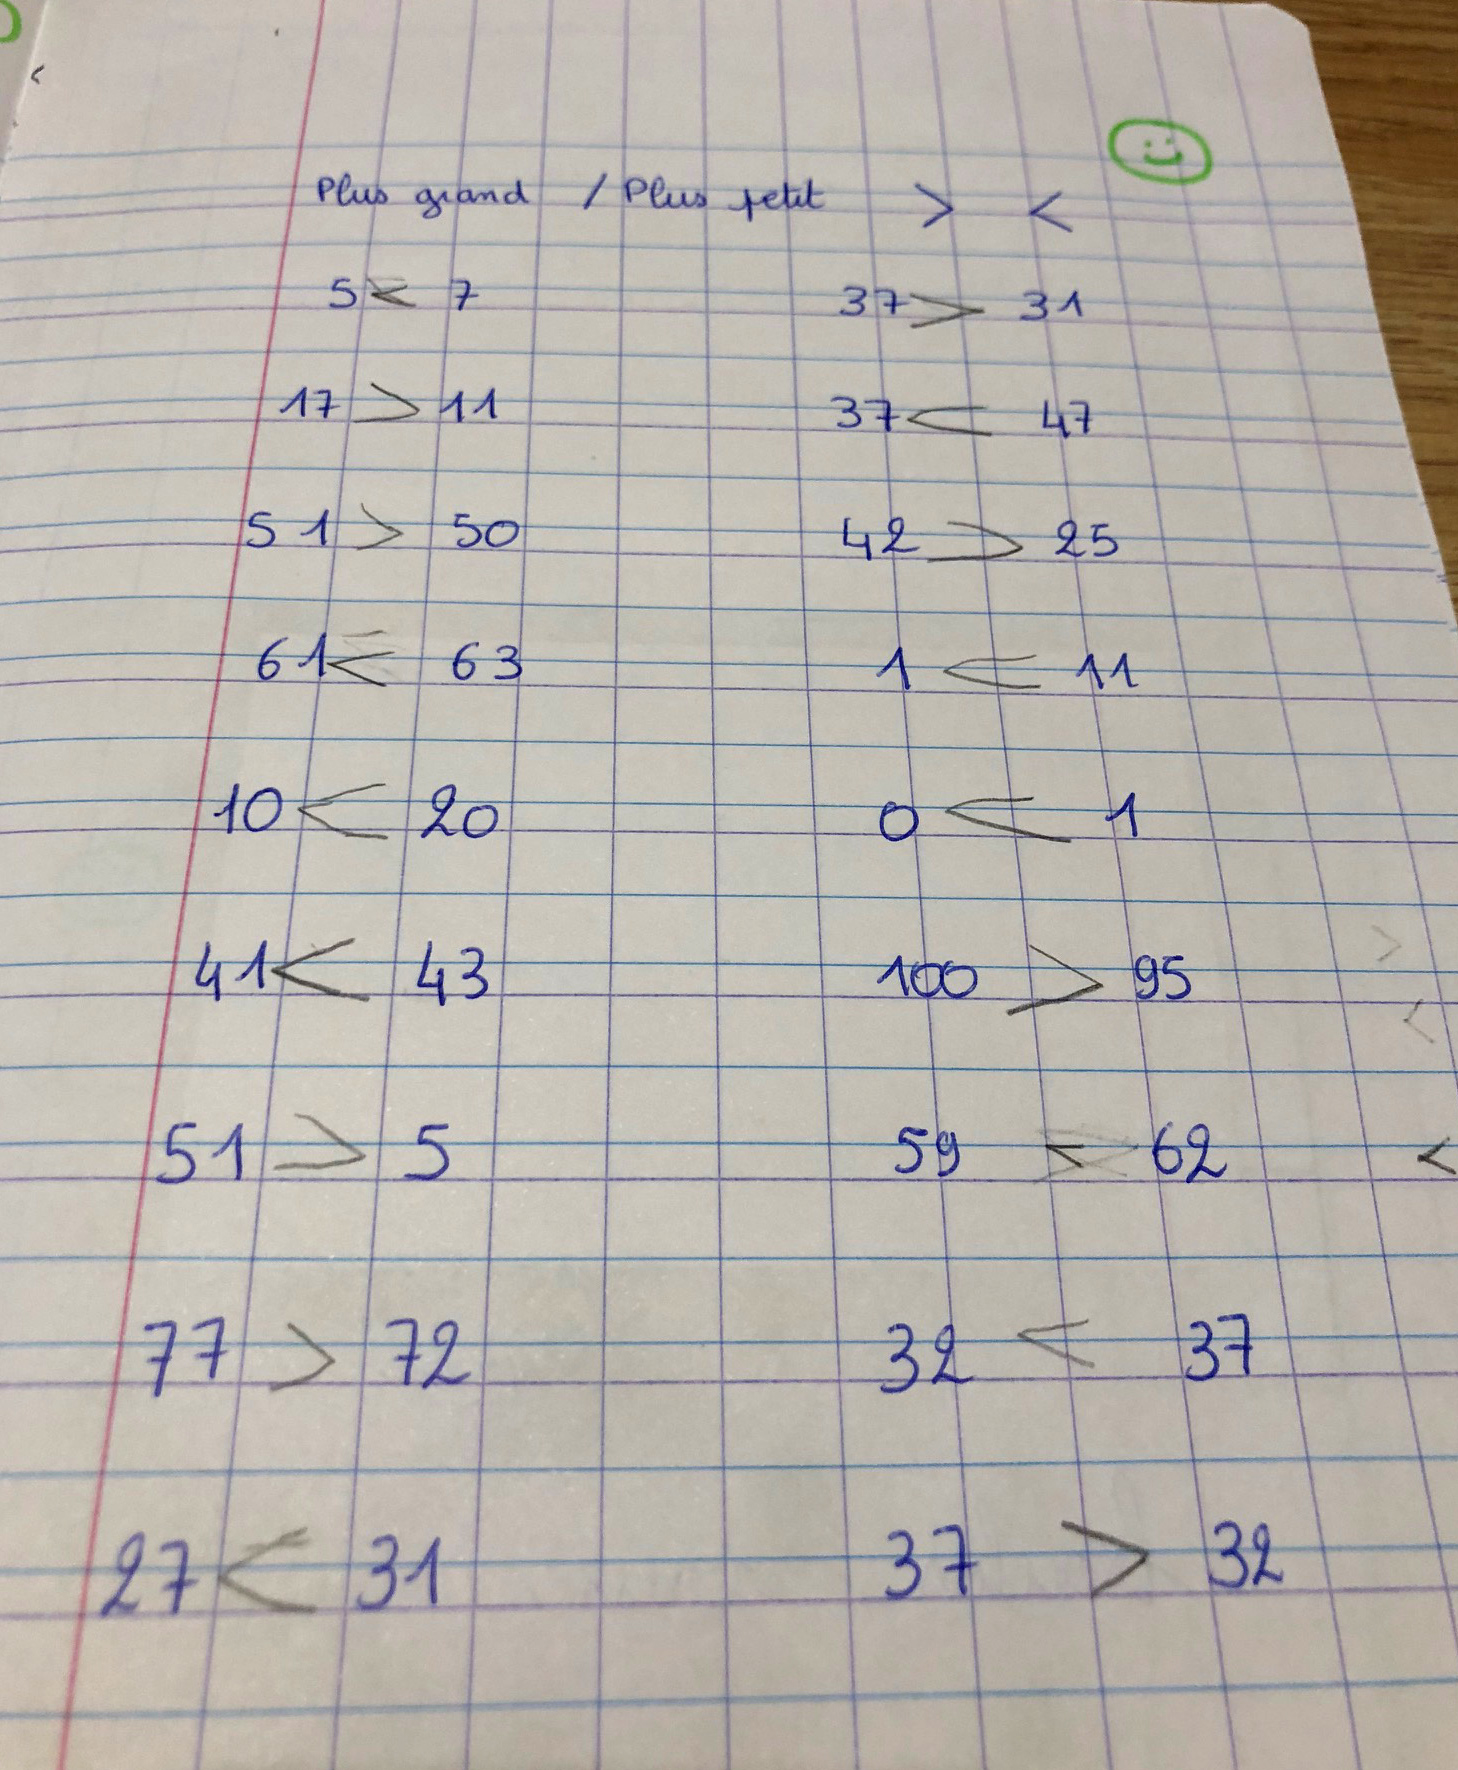 Plus grand / Plus petit > <
5 < 7 37 > 31
17 > 11 37 < 47
51 > 50 42 > 25
61 < 63 1 < 11
10 < 20 0 < 1
41 < 43 100 > 95
>
<
51 > 5 59 < 62 <
77 > 72 32 < 37
27 < 31 37 > 32